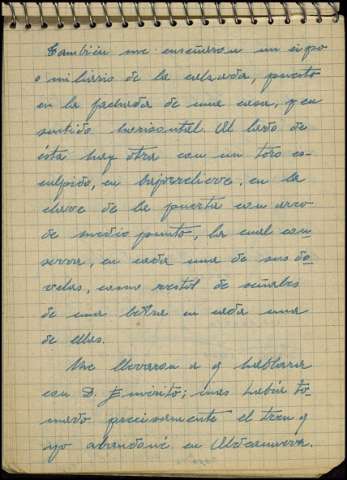 También me enseñaron un cipo
o miliario de la calzada, puesto
en la fachada de una casa, y en
sentido horizontal. Al lado de
ésta hay otra con un toro es-
culpido, en bajorelieve, en la
clave de la puerta con arco
de medio punto, la cual con-
serva, en cada una de sus do-
velas, como restos de señales
de una letra en cada una
de ellas.
Me llevaron a q hablara
con D. Emérito; mas había to-
mado precisamente el tren q
yo abandoné en